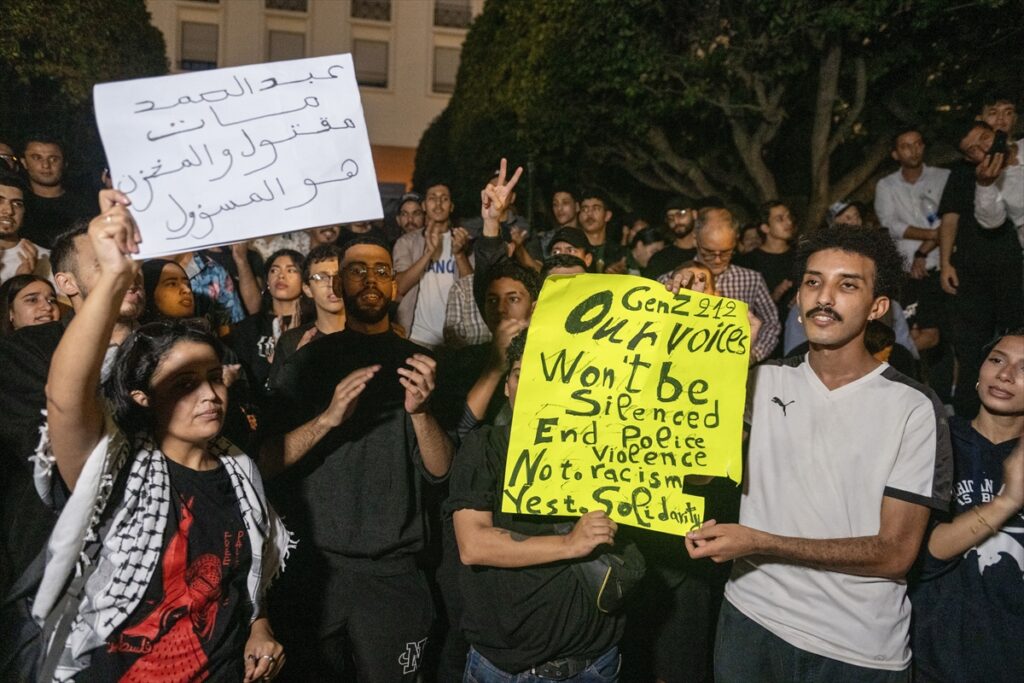 عبد الصمد
مات
مقتول والمخزن
هو المسؤول
GenZ 212
Our voices
Won't be
Silenced
End Police
violence
Not to racism
Yes to Solidarity